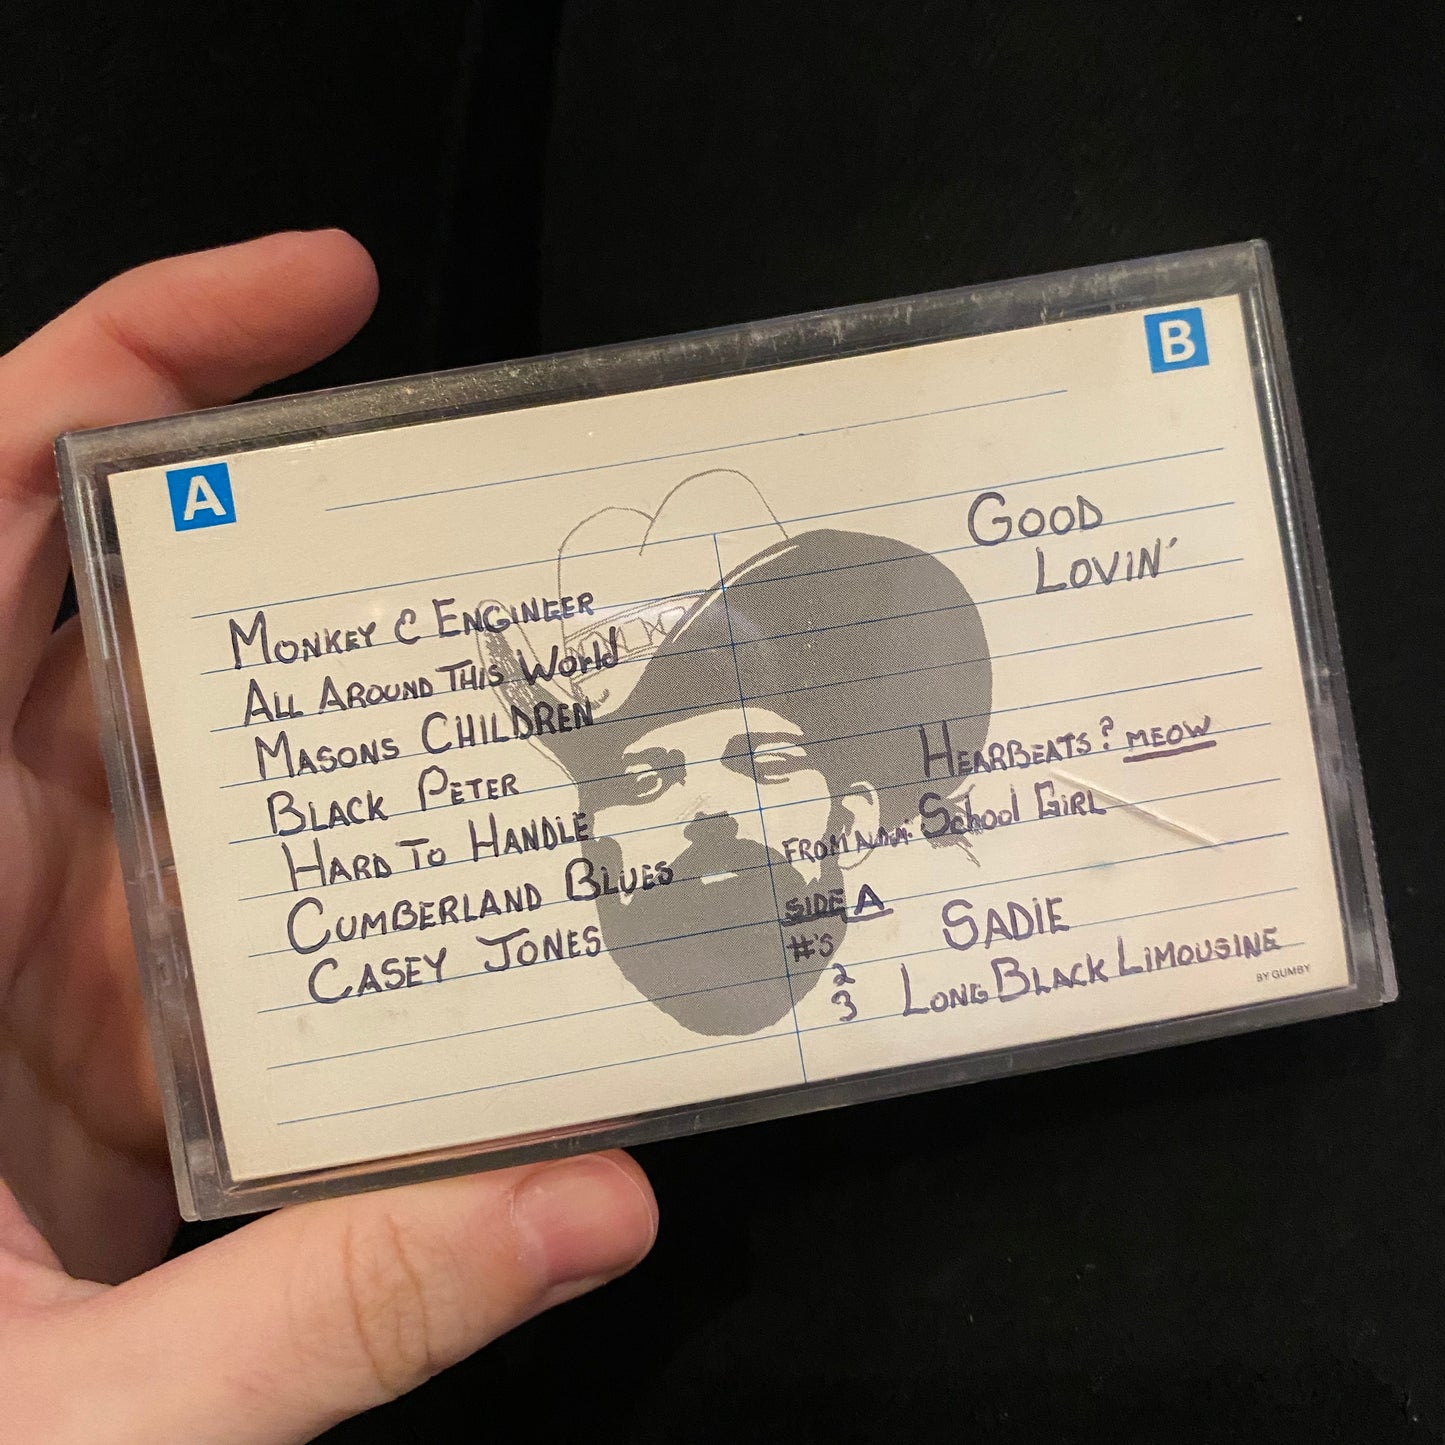 A
B
MONKEY & ENGINEER
ALL AROUND THIS World
MASONS CHILDREN
BLACK PETER
HARD TO HANDLE
CUMBERLAND BLUES
CASEY JONES
GOOD
LOVIN'
HEARBEATS? MEOW
FROM School GIRL
SIDE A
#'S
2 SADIE
3 LONG BLACK LIMOUSINE
BY GUMBY